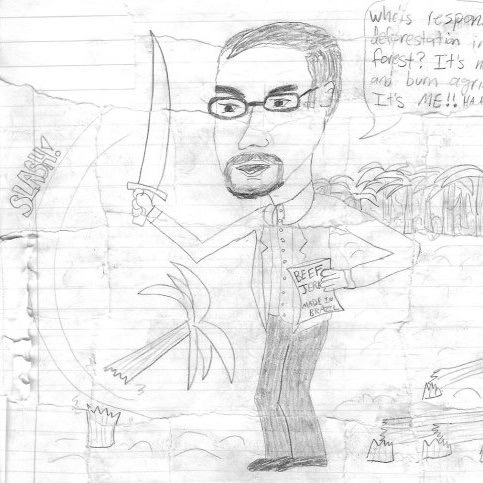 Who's respon
deforestation in
forest? It's n
and burn agri
It's ME!! HAA
SLASH!
BEEF
JERK
MADE IN
BRAZIL